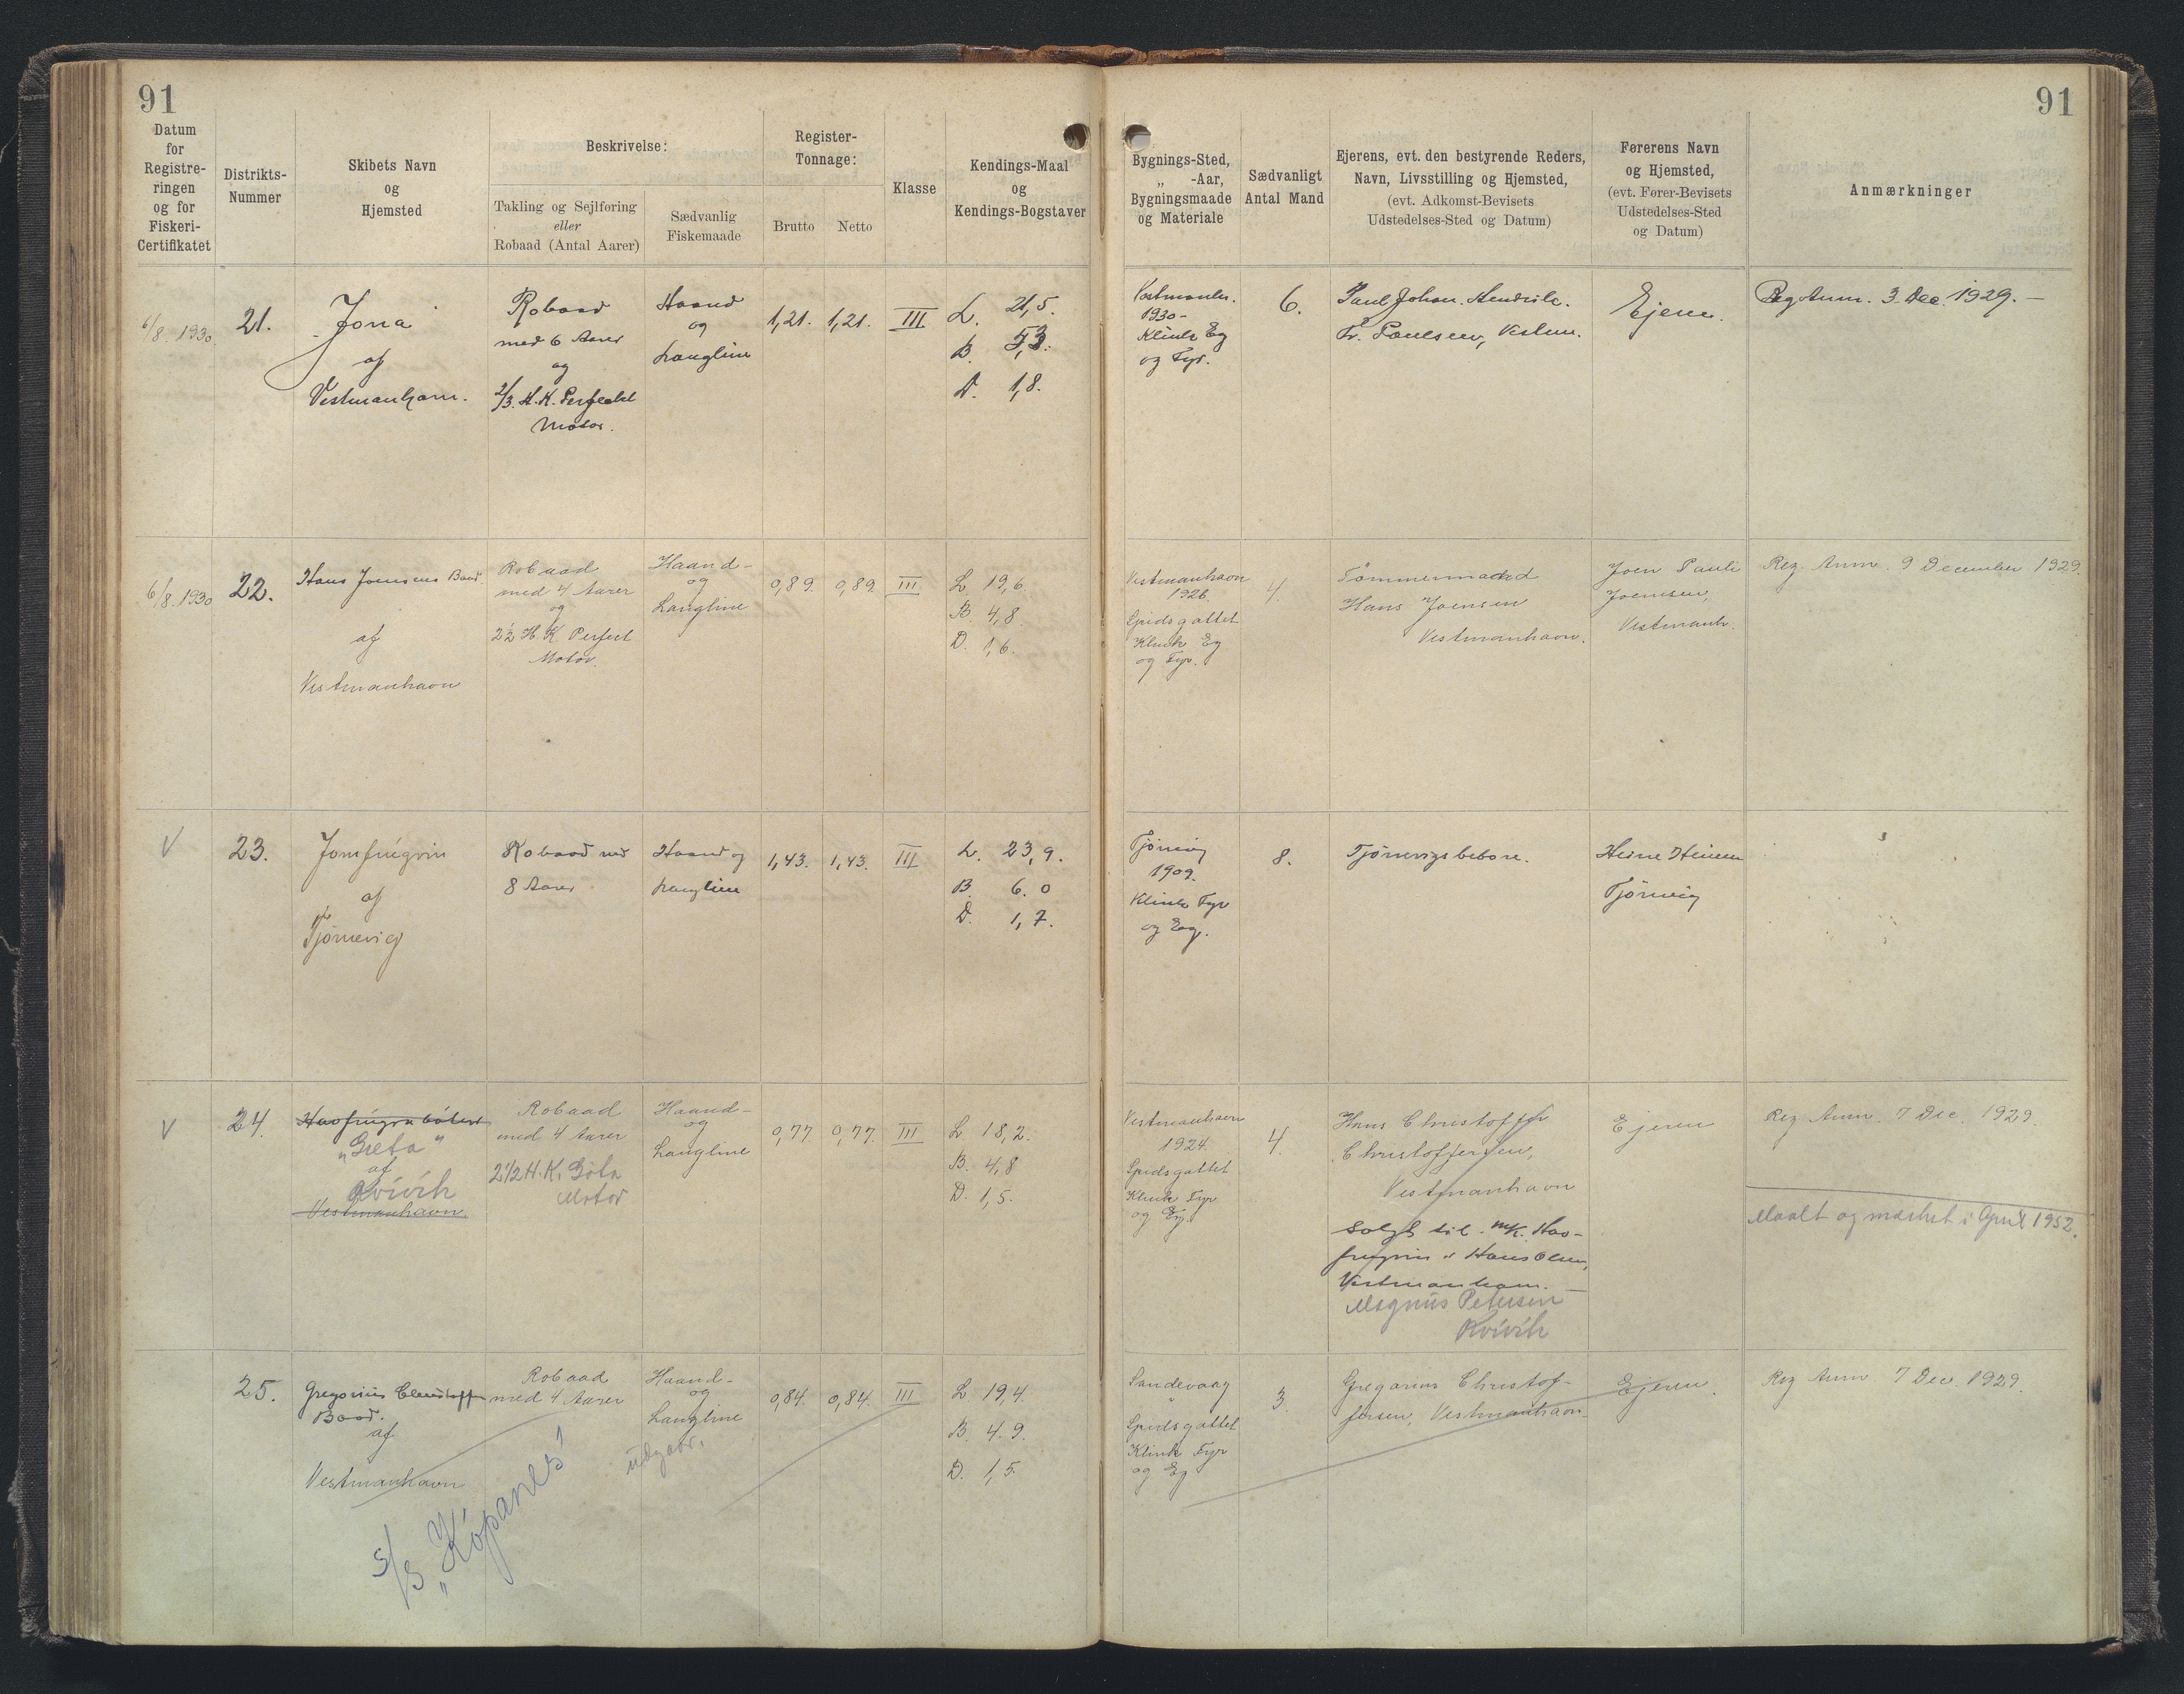 91
91
Datum
for
Registre-
ringen
og for
Fiskeri-
Certifikatet
Distrikts-
Nummer
Skibets Navn
og
Hjemsted
Beskrivelse:
Takling og Sejlføring
eller
Robaad (Antal Aarer)
Sædvanlig
Fiskemaade
Register-
Tonnage:
Brutto
Netto
Klasse
Kendings-Maal
og
Kendings-Bogstaver
Bygnings-Sted,
„ -Aar,
Bygningsmaade
og Materiale
Sædvanligt
Antal Mand
Ejerens, evt. den bestyrende Reders,
Navn, Livsstilling og Hjemsted,
(evt. Adkomst-Bevisets
Udstedelses-Sted og Datum)
Førerens Navn
og Hjemsted,
(evt. Fører-Bevisets
Udstedelses-Sted
og Datum)
Anmærkninger
6/8. 1930.
21.
Jona
af
Vestmanhavn.
Robaad
med 6 Aarer
og
2/3. H.K. Perfekt
Motor.
Haand
og
Langline
1,21.
1,21.
III
L. 21,5.
B. 5,3.
D. 1,8.
Vestmanh.
1930-
Klink Eg
og Fyr.
6.
Paul Johan. Hendrik.
Fr. Paulsen, Vestm.
Ejeren.
Reg Anm. 3. Dec. 1929. —
6/8. 1930
22.
Hans Joensens Baad.
af
Vestmanhavn
Robaad
med 4 Aarer
og
2½ H.K. Perfect
Motor.
Haand-
og
Langline
0,89.
0,89
III
L. 19,6.
B. 4,8.
D. 1,6.
Vestmanhavn
1926.
Spidsgattet
Klink Eg
og Fyr.
4.
Tømmermand
Hans Joensen
Vestmanhavn.
Joen Pauli
Joensen,
Vestmanh.
Reg. Anm. 9 December 1929.
V
23.
Jomfrúgvin
af
Tjørnevig
Robaad med
8 Aarer
Haand og
Langline
1,43.
1,43.
III
L. 23,9.
B. 6.0
D. 1,7.
Tjørnevig
1909.
Klink Fyr
og Eg.
8.
Tjørnevigs beboere.
Heine Heinesen
Tjørnevig
V
24.
Havfrúgva báturs
"Greta"
af
Kvívík
Vestmanhavn.
Robaad
med 4 Aarer
2½ H.K. Göta
Motor
Haand-
og
Langline
0,77
0,77.
III
L. 18,2.
B. 4,8
D. 1,5.
Vestmanhavn
1924.
Spidsgattet
Klink Fyr
og Eg.
4.
Hans Christoffer
Christoffersen,
Vestmanhavn
Solgt til m/K. Hav-
frúgvin v Hans Olsen,
Vestmanhavn.
Magnus Petersen
Kvívík
Ejeren
Reg. Anm. 7 Dec. 1929.
Maalt og mærket i April 1952.
25.
Gregorius Christoffersens
Baad.
af
Vestmanhavn
Robaad
med 4 Aarer
Haand-
og
Langline
udgaar.
0,84.
0,84.
III
L. 19,4.
B. 4.9.
D. 1,5.
Sandevaag
"
Spidsgattet
Klink Fyr
og Eg
3.
Gregorius Christof-
fersen, Vestmanhavn.
Ejeren.
Reg Anm 7 Dec. 1929.
S/S „Kópanes"